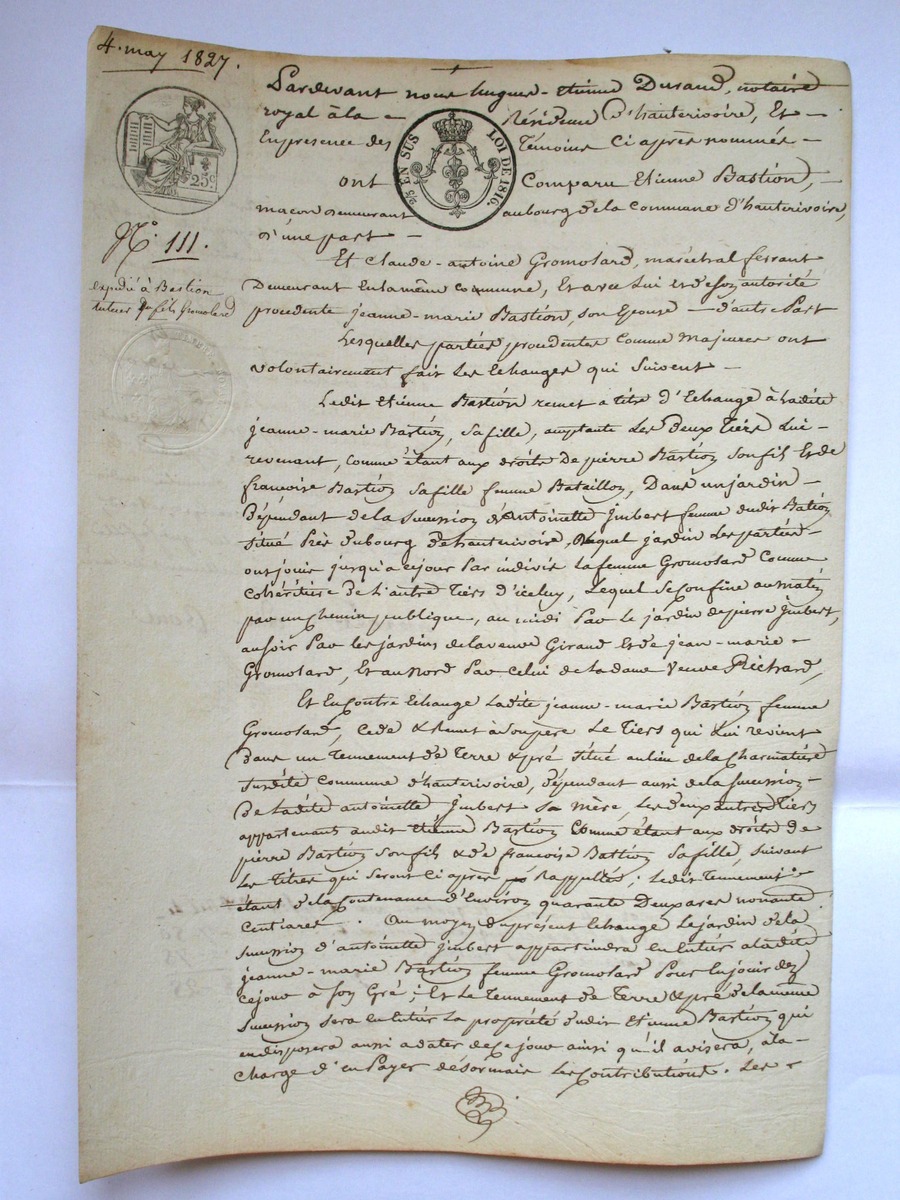 4. may 1827.
Pardevant nous hugues-etienne Durand, notaire
royal à la Résidence d'hauterivoire, Et
En presence des Témoins Ci après nommés
ont Comparu Etienne Bastion,
maçon demeurant au bourg de la Commune d'hauterivoire,
d'une part
25c
25c EN SUS LOI DE 1816.
N.° 111.
expédié à Bastion
tuteur du fils Gromolard
Et Claude-antoine Gromolard, maréchal ferrant
Demeurant En la même Commune, Et avec Lui Et de son autorité
procedente jeanne-marie Bastion, son Epouse d'autre Part
Lesquelles parties procedentes comme majeures ont
volontairement fait Les Echanges qui suivent
Ledit Etienne Bastion remet a titre d'Echange à Ladite
jeanne-marie Bastion, sa fille, acceptante Les Deux Tiers Lui
revenant, comme étant aux droits De pierre Bastion son fils Et de
françoise Bastion sa fille femme Bataillon, Dans un jardin
Dépendant de la succession d'antoinette jmbert femme dudit Bation
situé Près du bourg d'hauterivoire, Duquel jardin Les parties
ont joui jusqu'a ce jour Par indivis La femme Gromolard Comme
Cohéritière De L'autre Tiers d'iceluy, Lequel Se Confine au matin
par un Chemin publique, au midi Par le jardin de pierre jmbert,
au soir Par les jardins de la veuve Giraud Et de jean-marie
Gromolard, Et au Nord Par Celui de La dame Veuve Pichard,
Et En Contre Echange Ladite jeanne-marie Bastion femme
Gromolard, Cede & Remet à son père Le Tiers qui Lui revient
Dans un Tennement de Terre & pré Situé au lieu de la Charmatière
Susdite Commune d'hauterivoire, dépendant aussi de la succession
De Ladite antoinette jmbert Sa mère, Les deux autres Tiers
appartenant audit Etienne Bastion Comme étant aux droits de
pierre Bastion son fils & de françoise Battion Sa fille, suivant
Les Titres qui seront Ci après Rappellés; Ledit Tennement
étant de la Contenance d'Environ quarante Deux ares nonante
Centiares. Au moyen du présent Echange Le jardin de la
succession d'antoinette jmbert appartiendra en Entier a ladite
jeanne-marie Bastion femme Gromolard Pour En jouir dez
Ce jour à son Gré; Et Le Tennement de Terre & pré de la même
Succession sera en Entier La propriété dudit Etienne Bastion qui
en disposera aussi a dater de ce jour ainsi qu'il avisera, à la
Charge d'en Payer désormais Les Contributions. Les